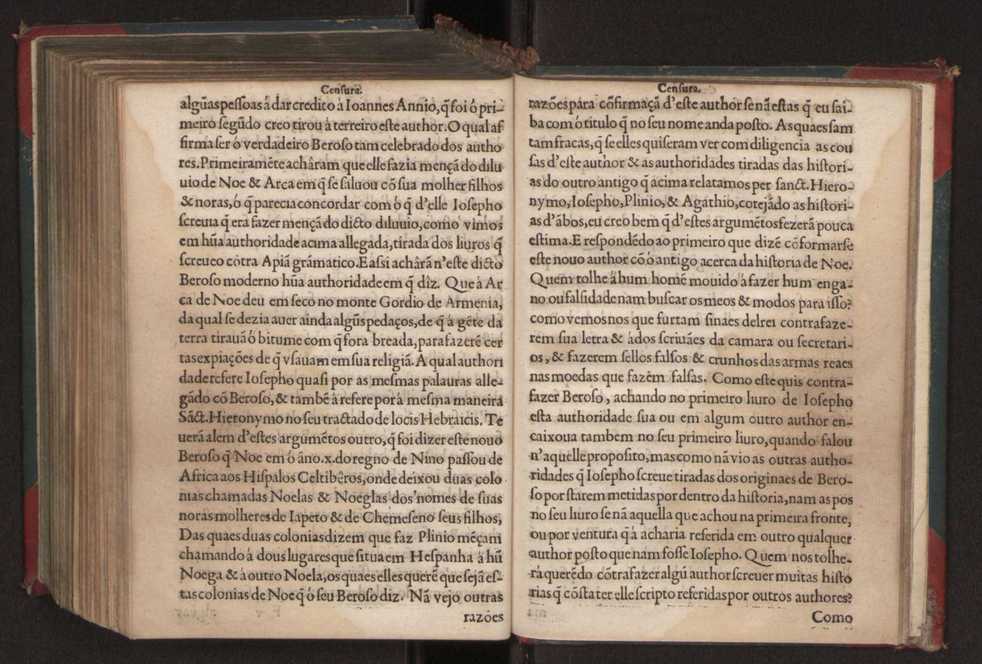 Censura.
algũas pessoas á dar credito à Ioannes Annio, q̃ foi ó pri-
meiro segũdo creo tirou à terreiro este author. O qual af
firma ser ò verdadeiro Beroso tam celebrado dos autho
res. Primeiramẽte achâram que elle fazia mençã do dilu
uio de Noe & Arca em q̃ se saluou cõ sua molher filhos
& noras, ó q̃ parecia concordar com ò q̃ d'elle Iosepho
screuia q̃ era fazer mençã do dicto diluuio, como vimos
em hũa authoridade acima allegada, tirada dos liuros q̃
screueo cõtra Apiã grámatico. E assi achârã n'este dicto
Beroso moderno hũa authoridade em q̃ diz. Que à Ar
ca de Noe deu em seco no monte Gordio de Armenia,
da qual se dezia auer ainda algũs pedaços, de q̃ à gẽte da
terra tirauã ó bitume com q̃ fora breada, para fazerẽ cer
tas expiações de q̃ vsauam em sua religiã. A qual authori
dade refere Iosepho quasi por as mesmas palauras alle-
gãdo cõ Beroso, & tambẽ à refere por à mesma maneira
Sãct. Hieronymo no seu tractado de locis Hebraicis. Te
uerã alem d'estes argumẽtos outro, q̃ foi dizer este nouo
Beroso q̃ Noe em ò âno. x. do regno de Nino passou de
Africa aos Hispalos Celtibêros, onde deixou duas colo
nias chamadas Noelas & Noeglas dos nomes de suas
noras molheres de Iapeto & de Chemeseno seus filhos,
Das quaes duas colonias dizem que faz Plinio mẽçam
chamando à dous lugares que situa em Hespanha à hũ
Noega & à outro Noela, os quaes elles querẽ que sejã es-
tas colonias de Noe q̃ ó seu Beroso diz. Nã vejo outras
razões
Censura.
razões pára cõfirmaçã d'este author se nã estas q̃ eu sai-
ba com ò titulo q̃ no seu nome anda posto. As quaes sam
tam fracas, q̃ se elles quiseram ver com diligencia as cou
sas d'este author & as authoridades tiradas das histori-
as do outro antigo q̃ acima relatamos per sanct. Hiero-
nymo, Iosepho, Plinio, & Agathio, cotejãdo as histori-
as d'ãbos, eu creo bem q̃ d'estes argumẽtos fezerã pouca
estima. E respondẽdo ao primeiro que dizẽ cõformarse
este nouo author cõ ò antigo acerca da historia de Noe.
Quem tolhe à hum homẽ mouido à fazer hum enga-
no ou falsidade nam buscar os meos & modos para isso?
como vemos nos que furtam sinaes delrei contrafaze-
rem sua letra & à dos scriuães da camara ou secretari-
os, & fazerem sellos falsos & crunhos das armas reaes
nas moedas que fazẽm falsas. Como este quis contra-
fazer Beroso, achando no primeiro liuro de Iosepho
esta authoridade sua ou em algum outro author en-
caixou tambem no seu primeiro liuro, quando falou
n'aquelle proposito, mas como nã vio as outras autho-
ridades q̃ Iosepho screue tiradas dos originaes de Bero-
so por starem metidas por dentro da historia, nam as pos
no seu liuro se nã aquella que achou na primeira fronte,
ou por ventura q̃ à acharia referida em outro qualquer
author posto que nam fosse Iosepho. Quem nos tolhe-
rà querẽdo cõtrafazer algũ author screuer muitas histo
rias q̃ cõsta ter elle scripto referidas por outros authores?
Como